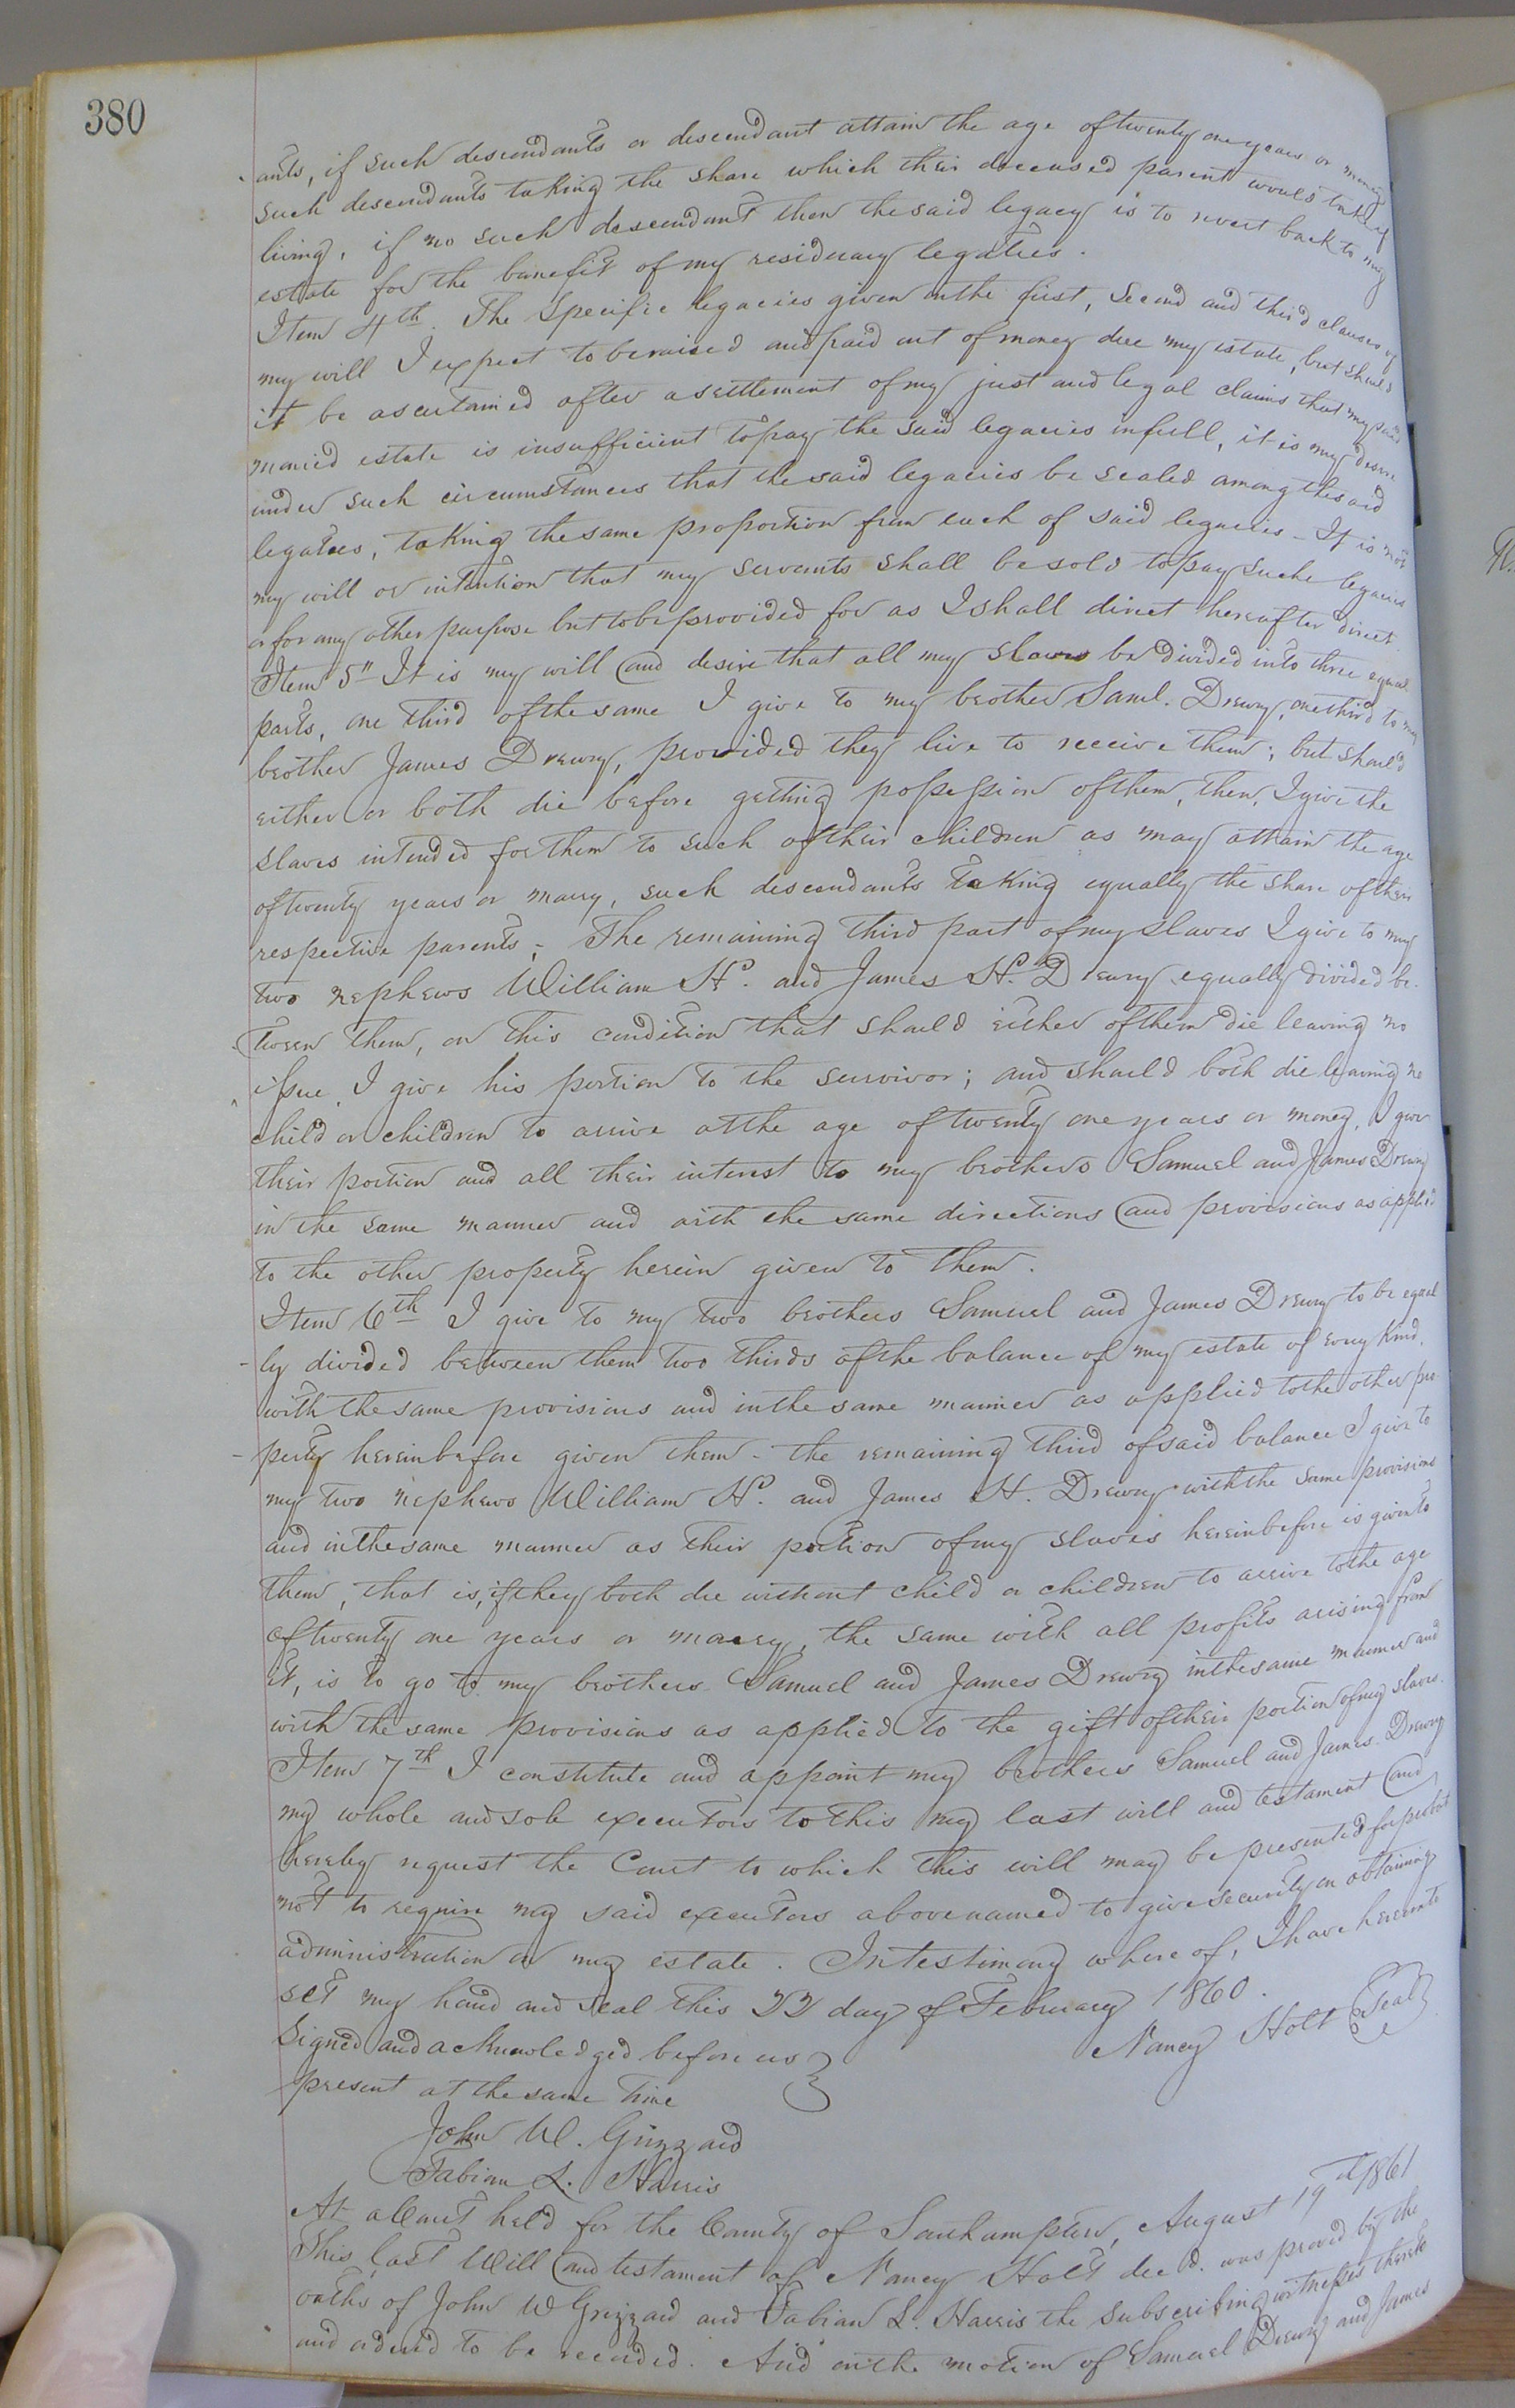 380
ants, if such descendants or descendant attain the age of twenty one years or marry
such descendants taking the share which their deceased parent would take if
living, if no such descendant then the said legacy is to revert back to my
estate for the benefit of my residuary legatees.
Item 4th. The Specific legacies given in the first, Second and third clauses of
my will I expect to be raised and paid out of money due my estate, but should
it be ascertained after a settlement of my just and legal claims that my said
monied estate is insufficient to pay the said legacies in full, it is my desire
under such circumstances that the said legacies be scaled among the said
legatees, taking the same proportion from each of said legacies - It is not
my will or intention that my servants shall be sold to pay such legacies
or for any other purpose but to be provided for as I shall direct hereafter direct.
Item 5" It is my will and desire that all my slaves be divided into three equal
parts, one third of the same I give to my brother Saml. Drewry, one third to my
brother James Drewry, provided they live to receive them; but should
either or both die before getting possession of them, then, I give the
slaves intended for them to such of their children as may attain the age
of twenty years or marry, such descendants taking equally the share of their
respective parents - The remaining third part of my slaves I give to my
two nephews William H. and James H. Drewry equally divided be-
tween them, on this condition that should either of them die leaving no
issue, I give his portion to the survivor; and should both die leaving no
child or children to arrive at the age of twenty one years or marry, I give
their portion and all their interest to my brothers Samuel and James Drewry
in the same manner and with the same directions and provisions as applied
to the other property herein given to them.
Item 6th I give to my two brothers Samuel and James Drewry to be equal
- ly divided between them two thirds of the balance of my estate of every kind,
with the same provisions and in the same manner as applied to the other pro
- perty hereinbefore given them - the remaining third of said balance I give to
my two nephews William H. and James H. Drewry with the same provisions
and in the same manner as their portion of my slaves hereinbefore is given to
them, that is, if they both die without child or children to arrive to the age
of twenty one years or marry, the same with all profits arising from
it, is to go to my brothers Samuel and James Drewry in the same manner and
with the same provisions as applied to the gift of their portion of my slaves.
Item 7th I constitute and appoint my brothers Samuel and James Drewry
my whole and sole executors to this my last will and testament and
hereby request the Court to which this will may be presented for probat
not to require my said executors above named to give security on obtaining
administration on my estate. In testimony where of, I have hereunto
set my hand and seal this 22 day of February 1860.
Signed and acknowledged before us Nancy Holt Seal
present at the same time
John W. Grizzard
Fabian L. Harris
At a Court held for the County of Southampton, August 19th 1861
This last Will and testament of Nancy Holt decd. was proved by the
oaths of John W Grizzard and Fabian L. Harris the subscribing witnesses thereto
and ordered to be recorded. And on the motion of Samuel Drewry and James